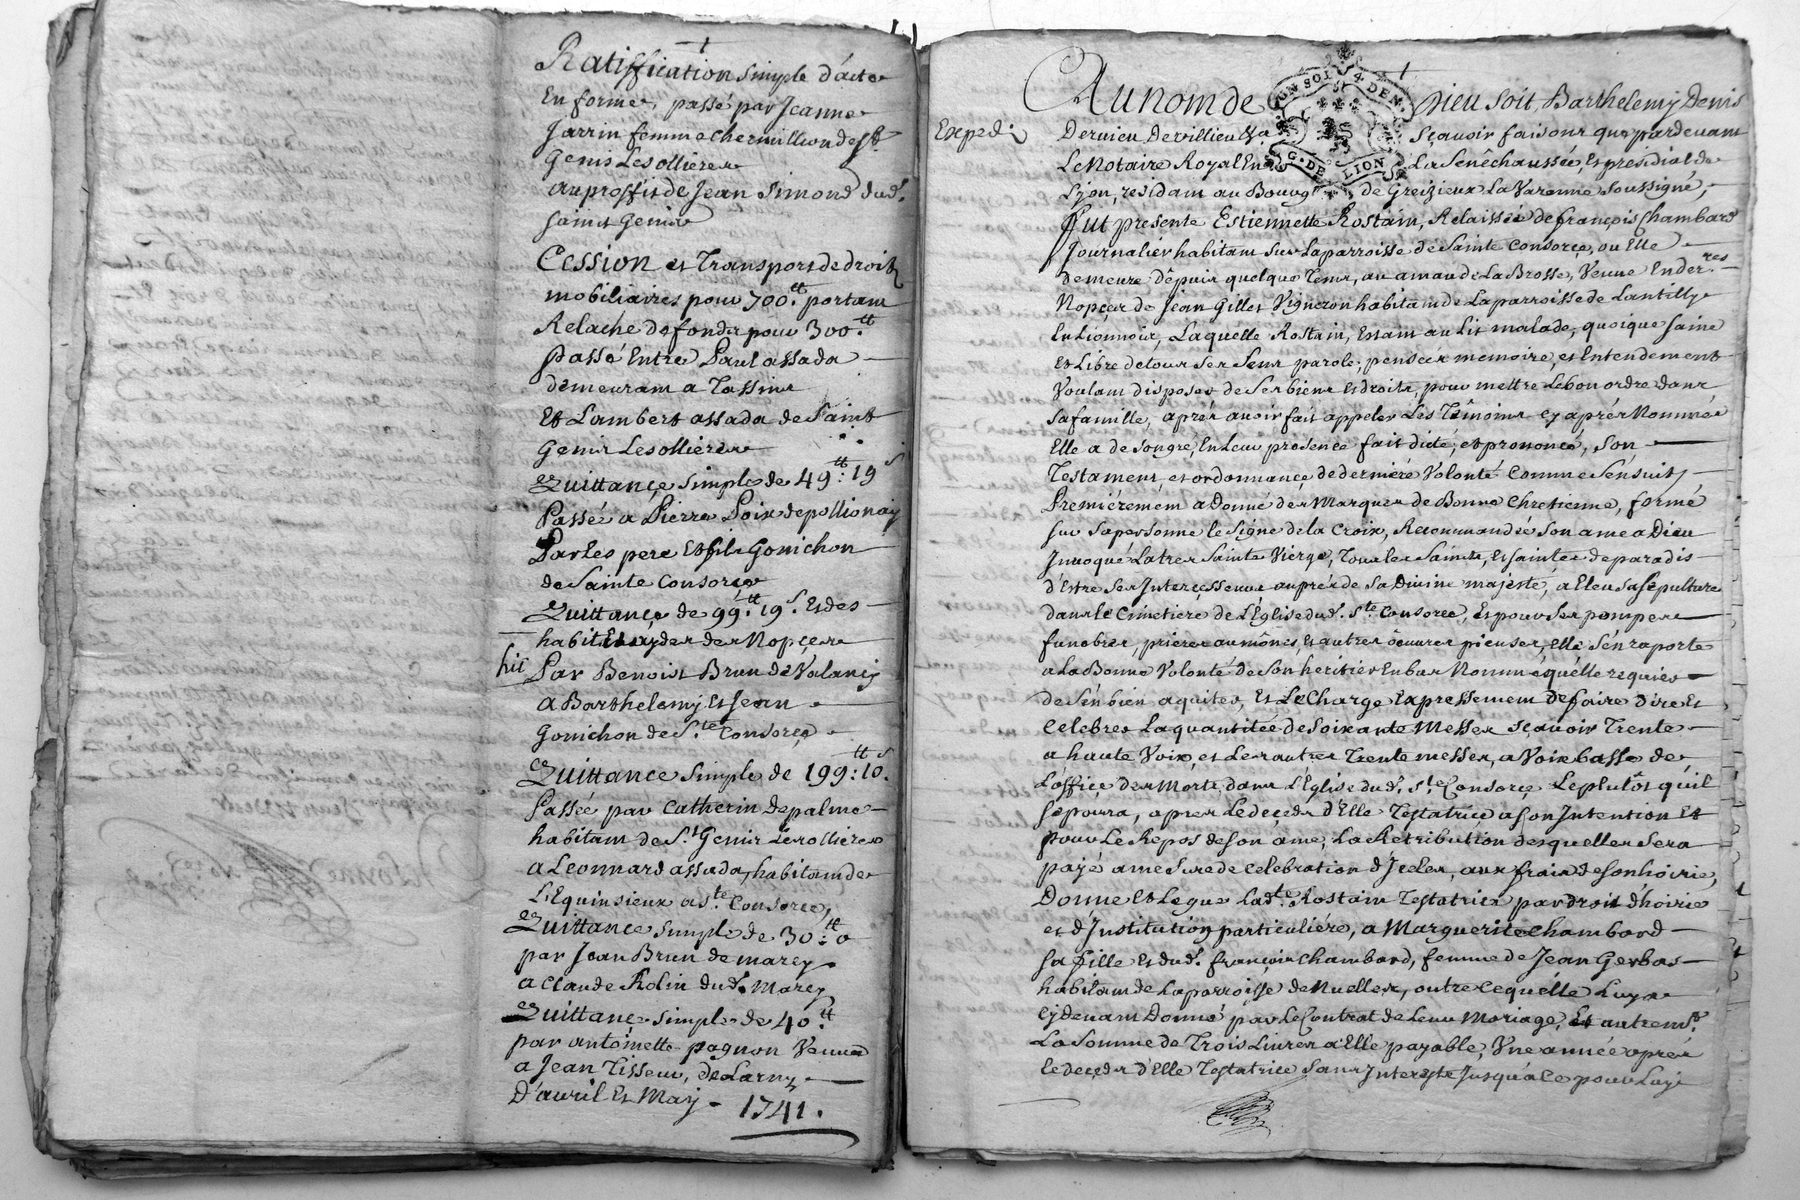 Ratiffication simple d'acte
En forme, passé par Jeanne
Jarrin femme Chermillion de St.
Genis Lesollieres
au proffit de Jean Simond dud.
saint Genis
Cession et Transport de droits
mobiliaires pour 700.tt portant
Relache de fonds pour 300.tt
passé Entre Paul assada
demeurant a Tassins
Et Lambert assada de Saint
Genis Lesollieres
Quittance simple de 49.tt 19 s
Passée a Pierre Loix de pollionay
Par Les pere Et fils Gonichon
de Sainte Consorce
Quittance de 99.tt 19 s. Et des
habits Et aydes des Nopces
hii Par Benoist Brun de Valancy
a Barthelemy Et Jean
Gonichon de Ste. Consorce
Quittance simple de 199.tt:10.s
Passée par Catherin depalme
habitant de St. Genis Lesollieres
a Leonnard assada, habitant de
L'Equinsieux a Ste. Consorce,
Quittance simple de 30.tt:0
par Jean Brun de marcy
a Claude Rolin dud. Marcy
Quittance simple de 40.tt
par antoinette pagnon Veuve
a Jean Tisseur, de Larny
D'avril Et May 1741.
Au nom de Dieu soit Barthelemy Denis
Exped.
Dervieu de villieu sçavoir faisons que pardevant
Le Notaire Royal En La Sénéchaussée, Et presidial de
Lyon, residant au Bourg de Greizieux La Varenne soussigné,
fut presente Estiennette Rostain, Relaissée de françois Chambard
Journalier habitant sur La parroisse de Sainte Consorce, ou Elle
demeure dépuis quelque Tems, au amau de La Brosse, Veuve En der.res
Nopces de Jean Gillet Vigneron habitant de La parroisse de Lantilly
En Lionnois, Laquelle Rostain, Estant au Lit malade, quoique saine
Et Libre de tous ses sens parole, pensées memoire, et Entendement
Voulant disposer de ses biens Et droits, pour mettre Le bon ordre dans
sa famille, aprés avoir fait appeler Les Témoins cy aprés Nommés
Elle a de son gré, En Leur presence fait dicté, et prononcé, son
Testament, et ordonnance de derniére Volonté Comme S'ensuit,
Premiérement, a Donné des Marques de Bonne Chretienne, formé
sur sa personne le Signe de la Croix, Recommandée son ame a Dieu
Invoqué La tres Sainte Vierge, Tous les Saints, Et Saintes de paradis
d'Etre ses Intercesseurs auprés de sa Divine majesté, a Eleu sa sepulture
dans Le Cimetiere de L'Eglise dud. Ste Consorce, Et pour ses pompes
funebres, prieres aumônes, Et autres œuvres pieuses, Elle s'en raporte
a La Bonne Volonté de son heritier En bas Nommé qu'elle requiert
de s'en bien aquiter, Et Le Charge Expressement de faire Dire Et
Celebrer La quantitée de Soixante Messes sçavoir Trente
a haute Voix, et Les autres Trente messes, a Voix basse de
L'office des Morts, dans L'Eglise dud. Ste Consorce Le plutôt qu'il
se poura, apres Le decéds d'Elle Testatrice a son Intention Et
pour Le Repos de son ame, La Retribution desquelles sera
payé a mesure de Celebration d'Icelles, aux frais de son hoirie,
Donne Et Legue Lad.te Rostain Testatrice par droit d'hoirie
et d'Institution particuliére, a Marguerite Chambard
sa fille Et dud. françois Chambard, femme de Jean Gerbas
habitant de La parroisse de Nuelles, outre Ce qu'elle Luy a
cy devant Donné par Le Contrat de Leur Mariage, Et autrem.t
La Somme de Trois Livres a Elle payable, Une année aprés
Le decéds d'Elle Testatrice sans Interests Jusqu'a Ce pour Luy
UN SOL 4. DEN.
G. DE LION